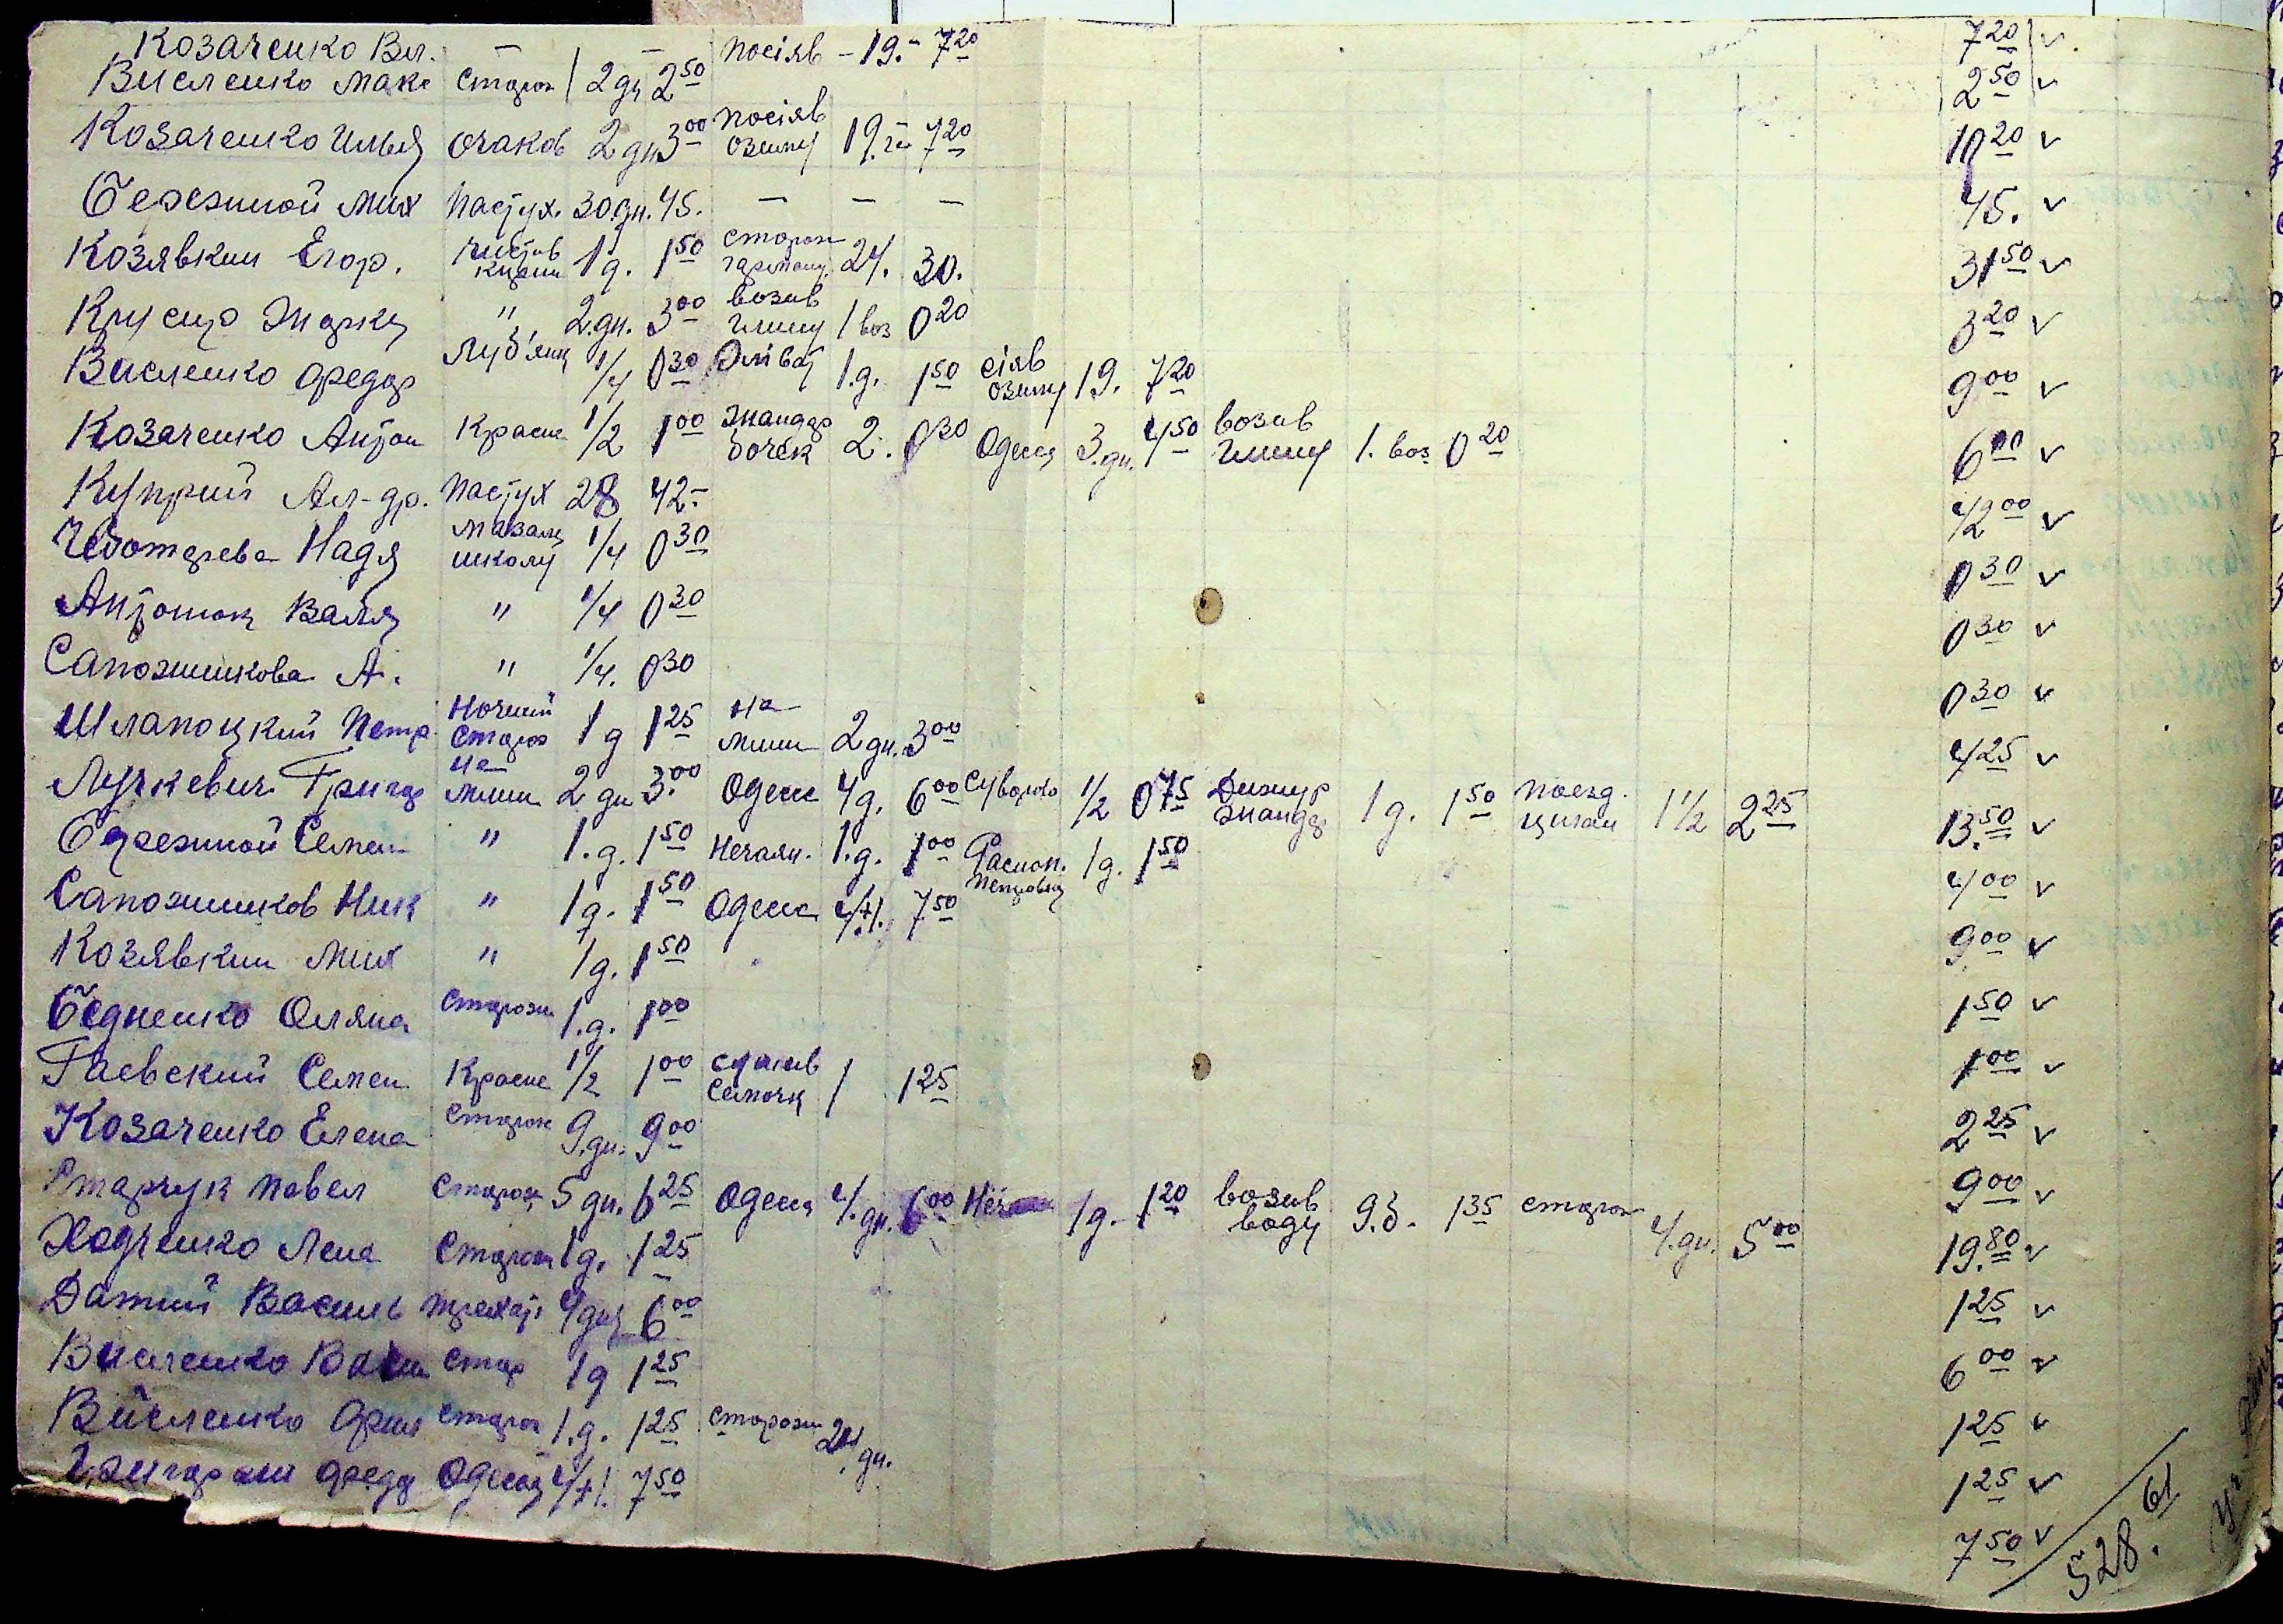 Козаченко Вл. — — посіяв – 19. – 7 20 7 20 v
Висленко Мако Сторож 1 2 дн 2 50 2 50 v
Козаченко Илья Очаков 2 дн 3 00 посіяв озиму 19. га 7 20 10 20 v
Бережной Мих Пастух. 30 дн. 45. — — — 45. v
Козявкин Егор. 1 д. 1 50 сторож гарману 24. 30. 31 50 v
Марку " 2. дн. 3 00 возив глину 1 воз 0 20 3 20 v
Висленко Федор 1/4 0 30 1. д. 1 50 сіяв озиму 19. 7 20 9 00 v
Козаченко Антон Красне 1/2 1 00 жандар бочек 2. 0 30 Одеса 3. дн. 4 50 возив глину 1. воз 0 20 6 00 v
Куприй Ал-др. Пастух 28 42 – 42 00 v
Чеботарева Надя мазали школу 1/4 0 30 0 30 v
Антонюк Валя " 1/4 0 30 0 30 v
Сапожникова А. " 1/4. 0 30 0 30 v
Шлапоцкий Петр Ночний Сторож 1 д 1 25 на млин 2 дн. 3 00 4 25 v
Луцкевич Григор на млин 2 дн 3. 00 Одесс 4 д. 6 00 Суворово 1/2 0 75 Дижур жандар 1 д. 1 50 поезд. циган 1 1/2 2 25 13. 50 v
Бережной Семен " 1. д. 1 50 Нечаян. 1. д. 1 00 1 д. 1 50 4 00 v
Сапожников Ник " 1 д. 1 50 Одесса 4+1. 7 50 9 00 v
Козявкин Мих " 1 д. 1 50 1 50 v
Бедненко Оляна Сторож 1. д. 1 00 1 00 v
Гаевский Семен Красне 1/2 1 00 1 1 25 2 25 v
Козаченко Елена Сторож 9. дн. 9 00 9 00 v
Старчук Павел Сторож 5 дн. 6 25 Одесса 4. дн. 6 00 1 д. 1 20 возив воду 9. б. 1 35 сторож 4. дн. 5 00 19. 80 v
Ходченко Лена Сторож 1 д. 1 25 1 25 v
Датий Василь 4 дня 6 00 6 00 v
Висленко Стор 1 д 1 25 1 25 v
Висленко Сторож 1. д. 1 25 Сторож дн. 1 25 v
Григораш Федо Одесса 4+1. 7 50 7 50 v
528. 61